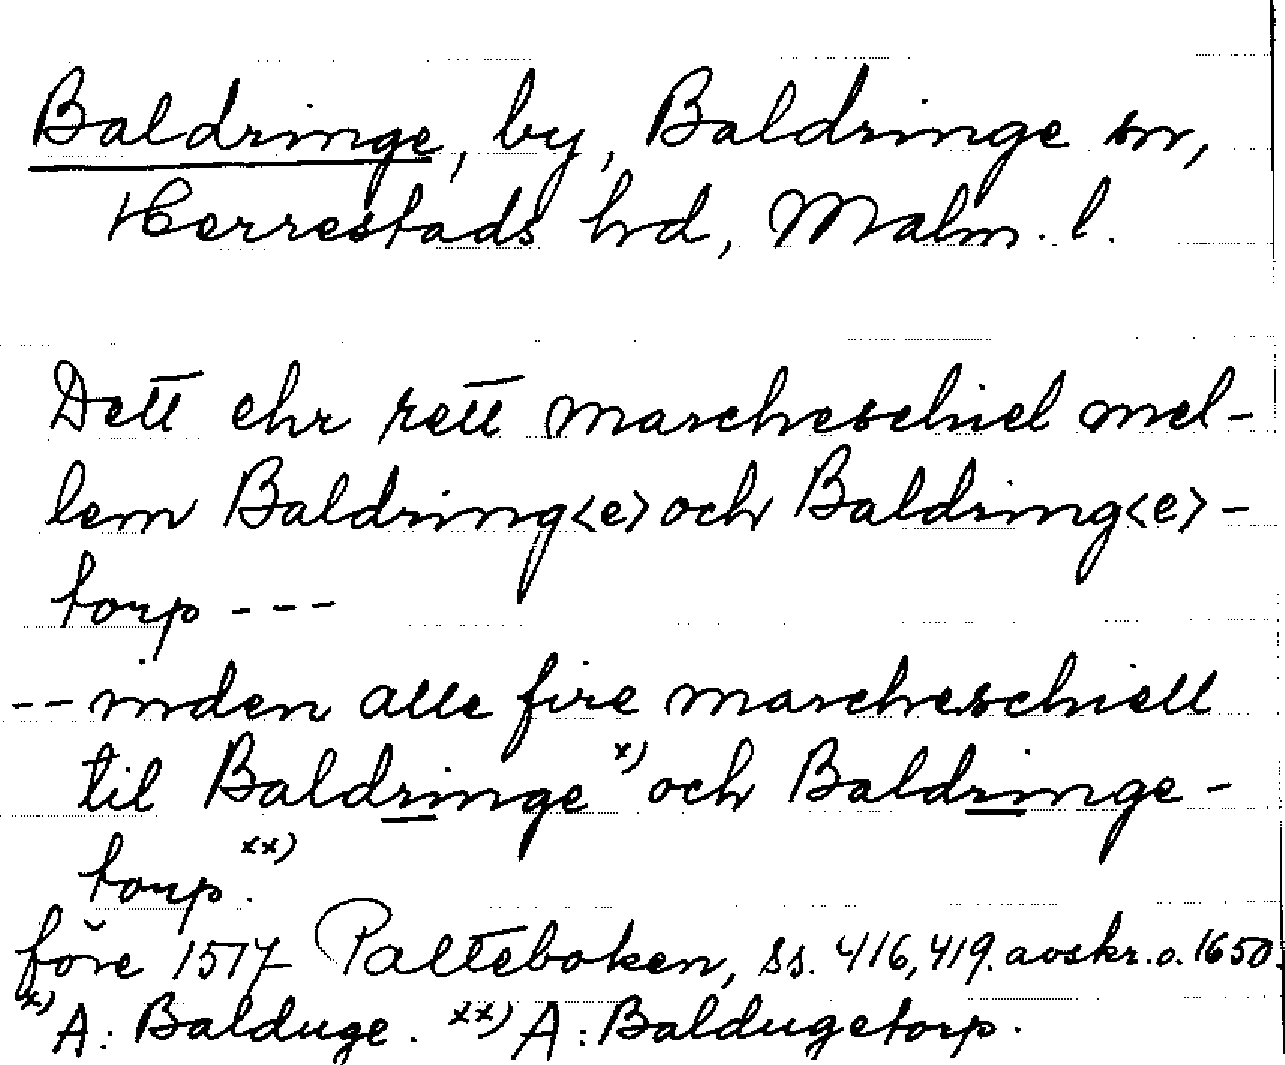 Baldringe, by, Baldringe sn,
Herrestads hrd, Malm. l.
Dett ehr rett marcheschiel mel-
lem Baldring<e> och Baldring<e>-
torp ---
-- inden alle fire marcheschiell
til Baldringe x) och Baldringe-
torp. xx)
före 1517 Palteboken, ss. 416, 419. avskr. o. 1650.
x) A: Balduge. xx) A: Baldugetorp.